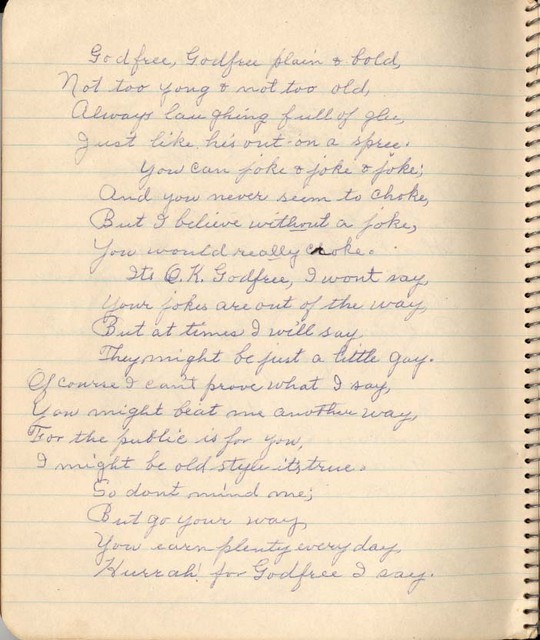 Godfree, Godfree plain & bold,
Not too yong & not too old,
Always laughing full of glee,
Just like his out on a spree.
You can joke & joke & joke;
And you never seem to choke,
But I believe without a joke,
You would really choke.
Its O.K. Godfree, I wont say,
Your jokes are out of the way,
But at times I will say,
They might be just a little gay.
Of course I cant prove what I say,
You might beat me another way,
For the public is for you,
I might be old style its true.
So dont mind me;
But go your way,
You earn plenty every day,
Hurrah! for Godfree I say.